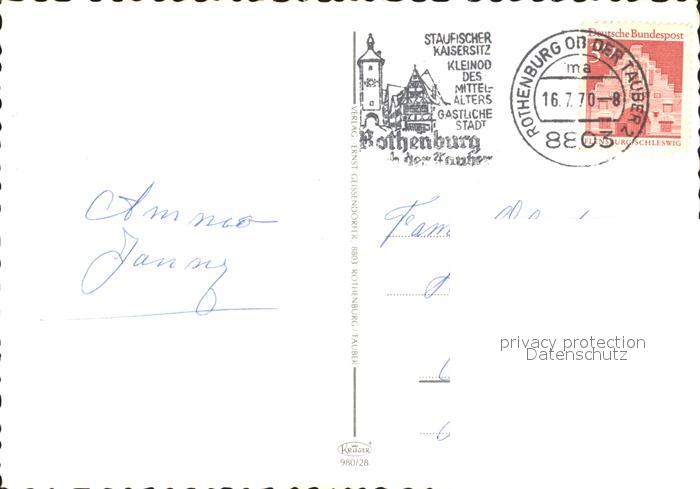 STAUFISCHER
KAISERSITZ
KLEINOD
DES
MITTEL-
ALTERS
GASTLICHE
STADT
Rothenburg
ob der Tauber
ROTHENBURG OB DER TAUBER 2
ma
16.7.70-8
8803
Deutsche Bundespost
FLENSBURG/SCHLESWIG
VERLAG ERNST GEISSENDÖRFER 8803 ROTHENBURG/TAUBER
Fam
privacy protection
Datenschutz
KRÜGER
980/28